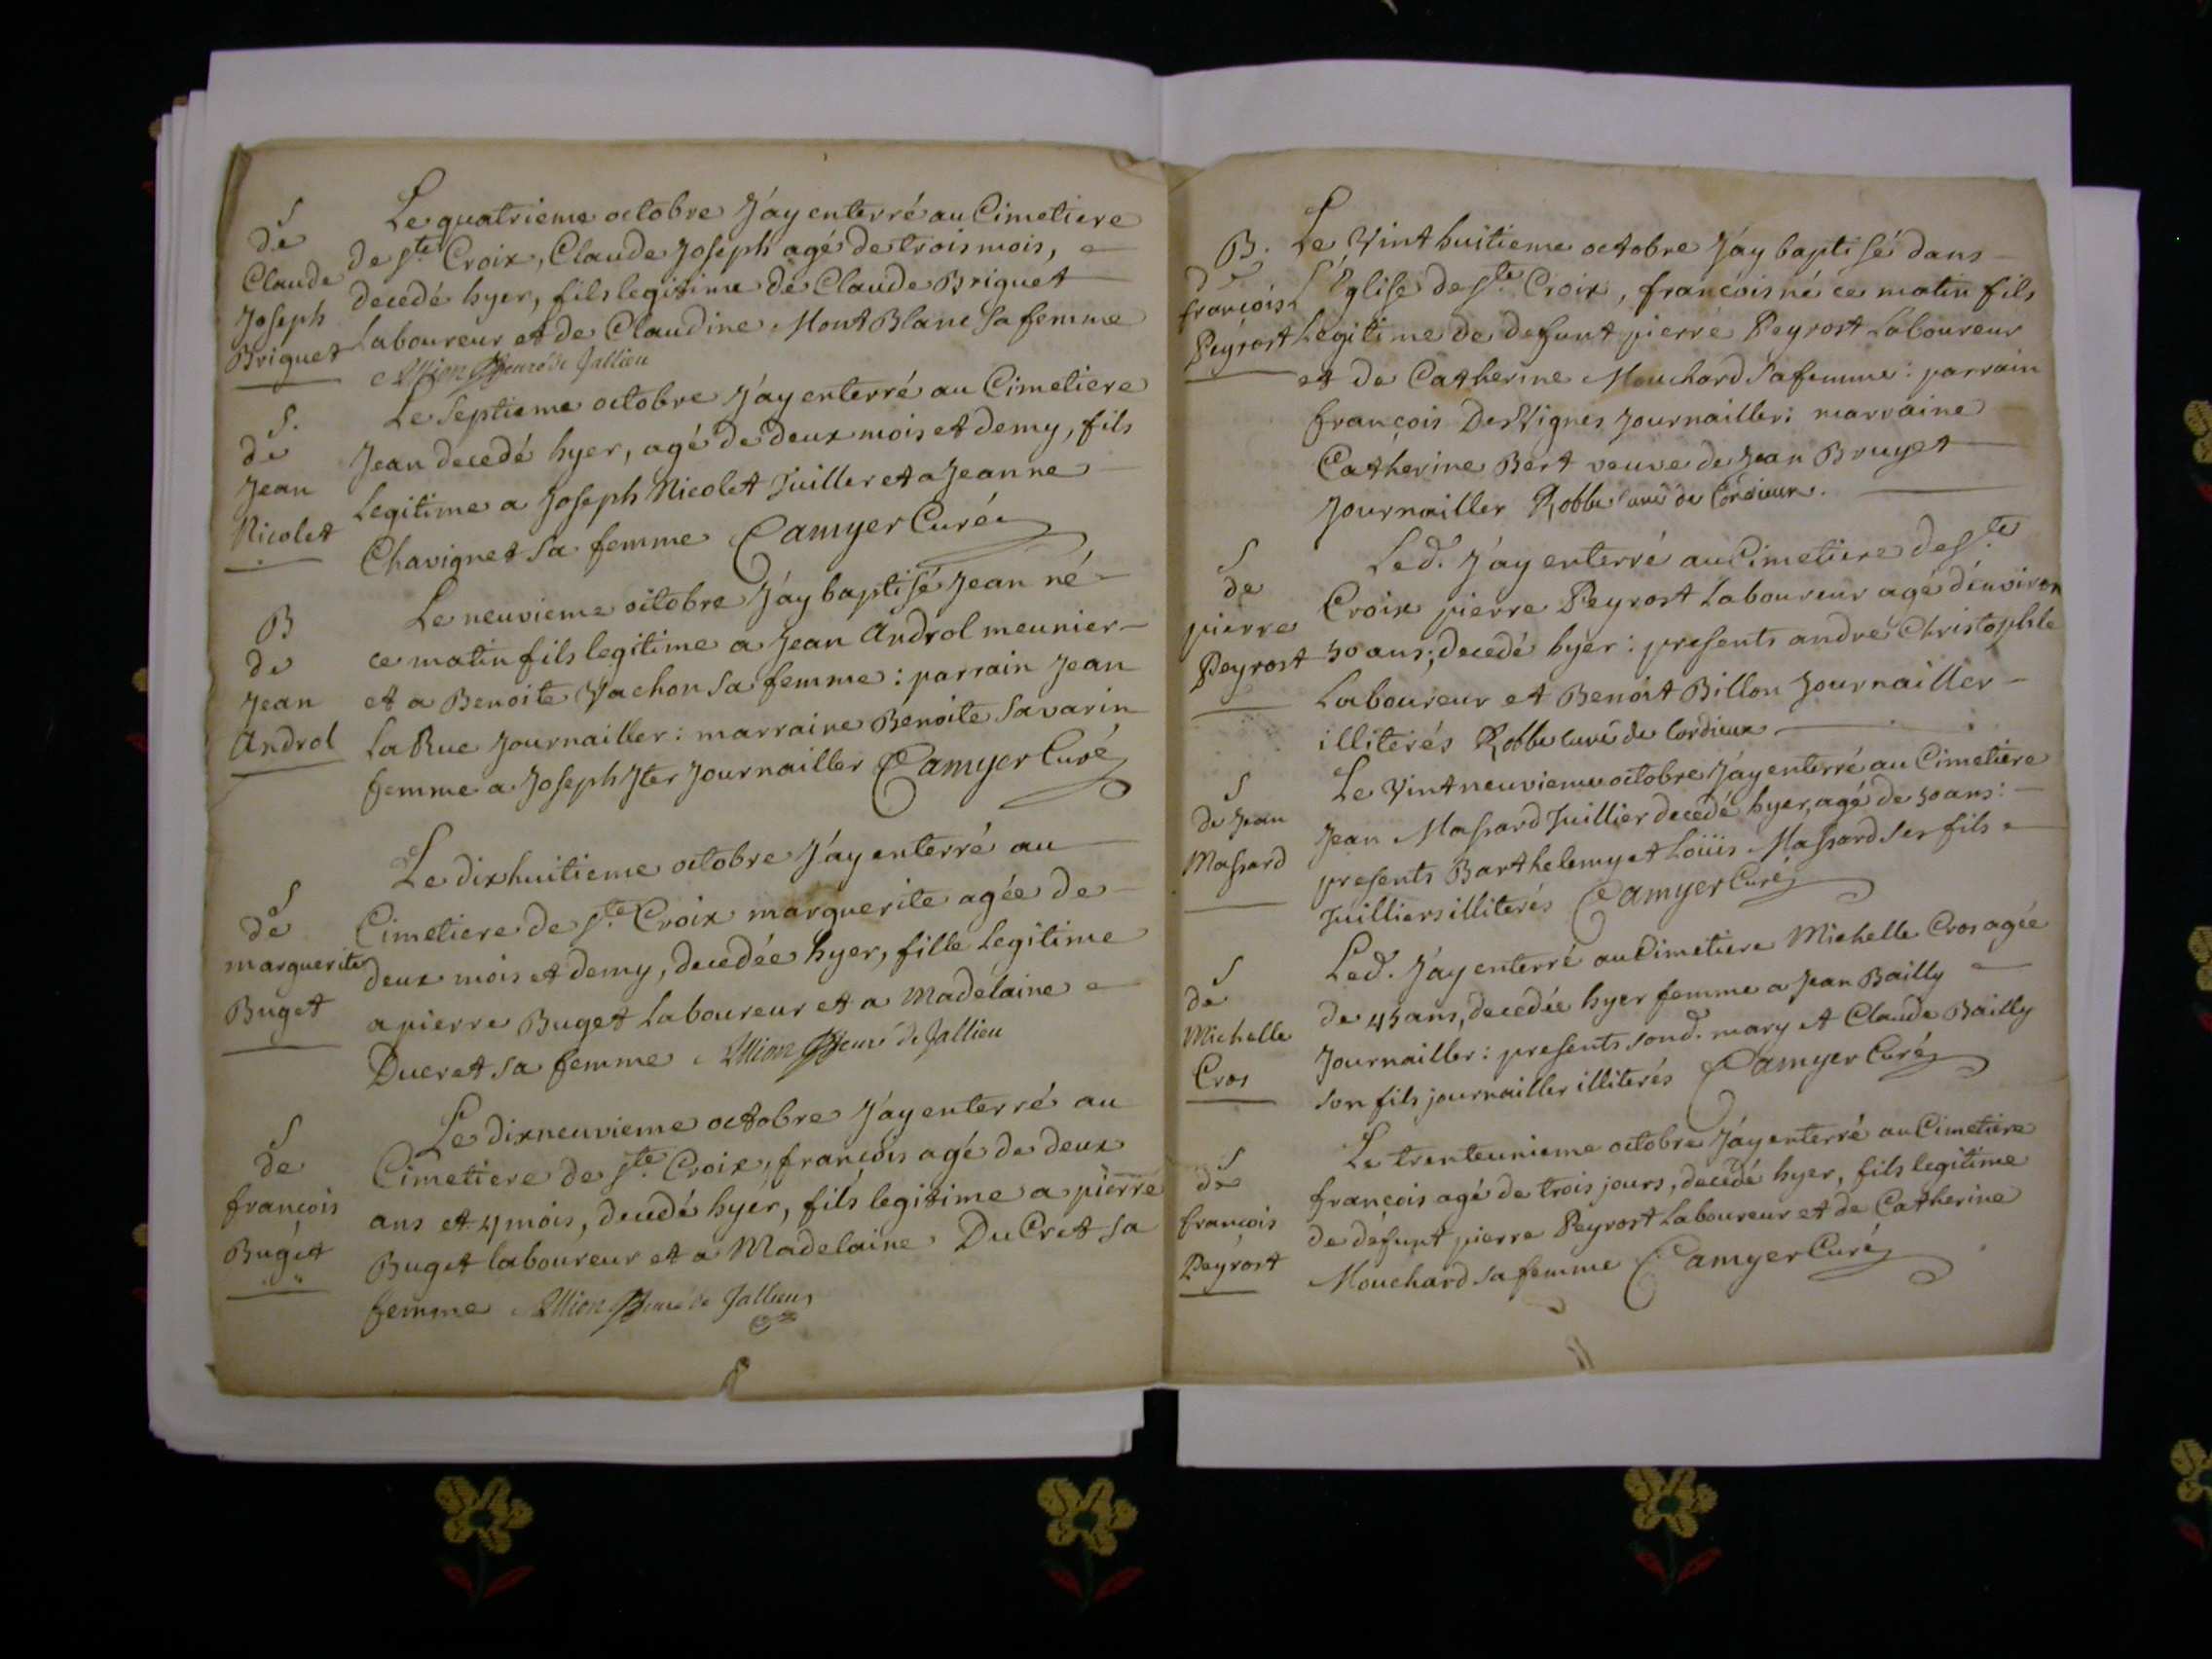 S
de
Claude
Joseph
Briguet
Le quatrieme octobre J'ay enterré au Cimetiere
de Ste Croix, Claude Joseph agé de trois mois,
decedé hyer, fils legitime de Claude Briguet
Laboureur et de Claudine MontBlanc sa femme
de Jallieu
S.
de
Jean
Nicolet
Le septieme octobre J'ay enterré au Cimetiere
Jean decedé hyer, agé de deux mois et demy, fils
legitime a Joseph Nicolet Tuiller et a Jeanne
Chavignet sa femme Camyer Curé
B
de
Jean
Androl
Le neuvieme octobre J'ay baptisé Jean né
ce matin fils legitime a Jean Androl meunier
et a Benoite Vachon sa femme : parrain Jean
La Rue Journailler : marraine Benoite Savarin
femme a Joseph Jter Journailler Camyer Curé
S
de
marguerite
Buget
Le dixhuitieme octobre J'ay enterré au
Cimetiere de Ste Croix marguerite agée de
deux mois et demy, decedée hyer, fille legitime
a pierre Buget Laboureur et a Madelaine
Ducret sa femme de Jallieu
S
de
françois
Buget
Le dixneuvieme octobre J'ay enterré au
Cimetiere de Ste Croix, françois agé de deux
ans et 4 mois, decedé hyer, fils legitime a pierre
Buget laboureur et a Madelaine DuCret sa
femme de Jallieu
B.
de
françois
Peyrost
Le Vint huitieme octobre J'ay baptisé dans
L'Église de Ste Croix, françois né ce matin fils
Legitime de defunt pierre Peyrost Laboureur
et de Catherine Mouchard sa femme : parrain
françois DesVignes Journailler : marraine
Catherine Bert veuve de Jean Bruyet
Journailler Robbe curé de Cordieux.
S
de
pierre
Peyrost
Led. J'ay enterré au Cimetiere de Ste
Croix pierre Peyrost Laboureur agé d'environ
50 ans; decedé hyer : presents andré Christophle
Laboureur et Benoit Billon Journailler
illiterés Robbe curé de Cordieux
S
de Jean
Massard
Le Vint neuvieme octobre J'ay enterré au Cimetiere
Jean Massard Tuillier decedé hyer, agé de 50 ans :
presents Barthelemy et Loüis Massard ses fils
Tuilliers illiterés Camyer Curé
S
de
Michelle
Cros
Led. J'ay enterré au Cimetiere Michelle Cros agée
de 45 ans, decedée hyer femme a Jean Bailly
Journailler : presents sond. mary et Claude Bailly
son fils journailler illiterés Camyer Curé
S
de
françois
Peyrost
Le trenteunieme octobre J'ay enterré au Cimetiere
françois agé de trois jours, decedé hyer, fils legitime
de defunt pierre Peyrost Laboureur et de Catherine
Mouchard sa femme Camyer Curé